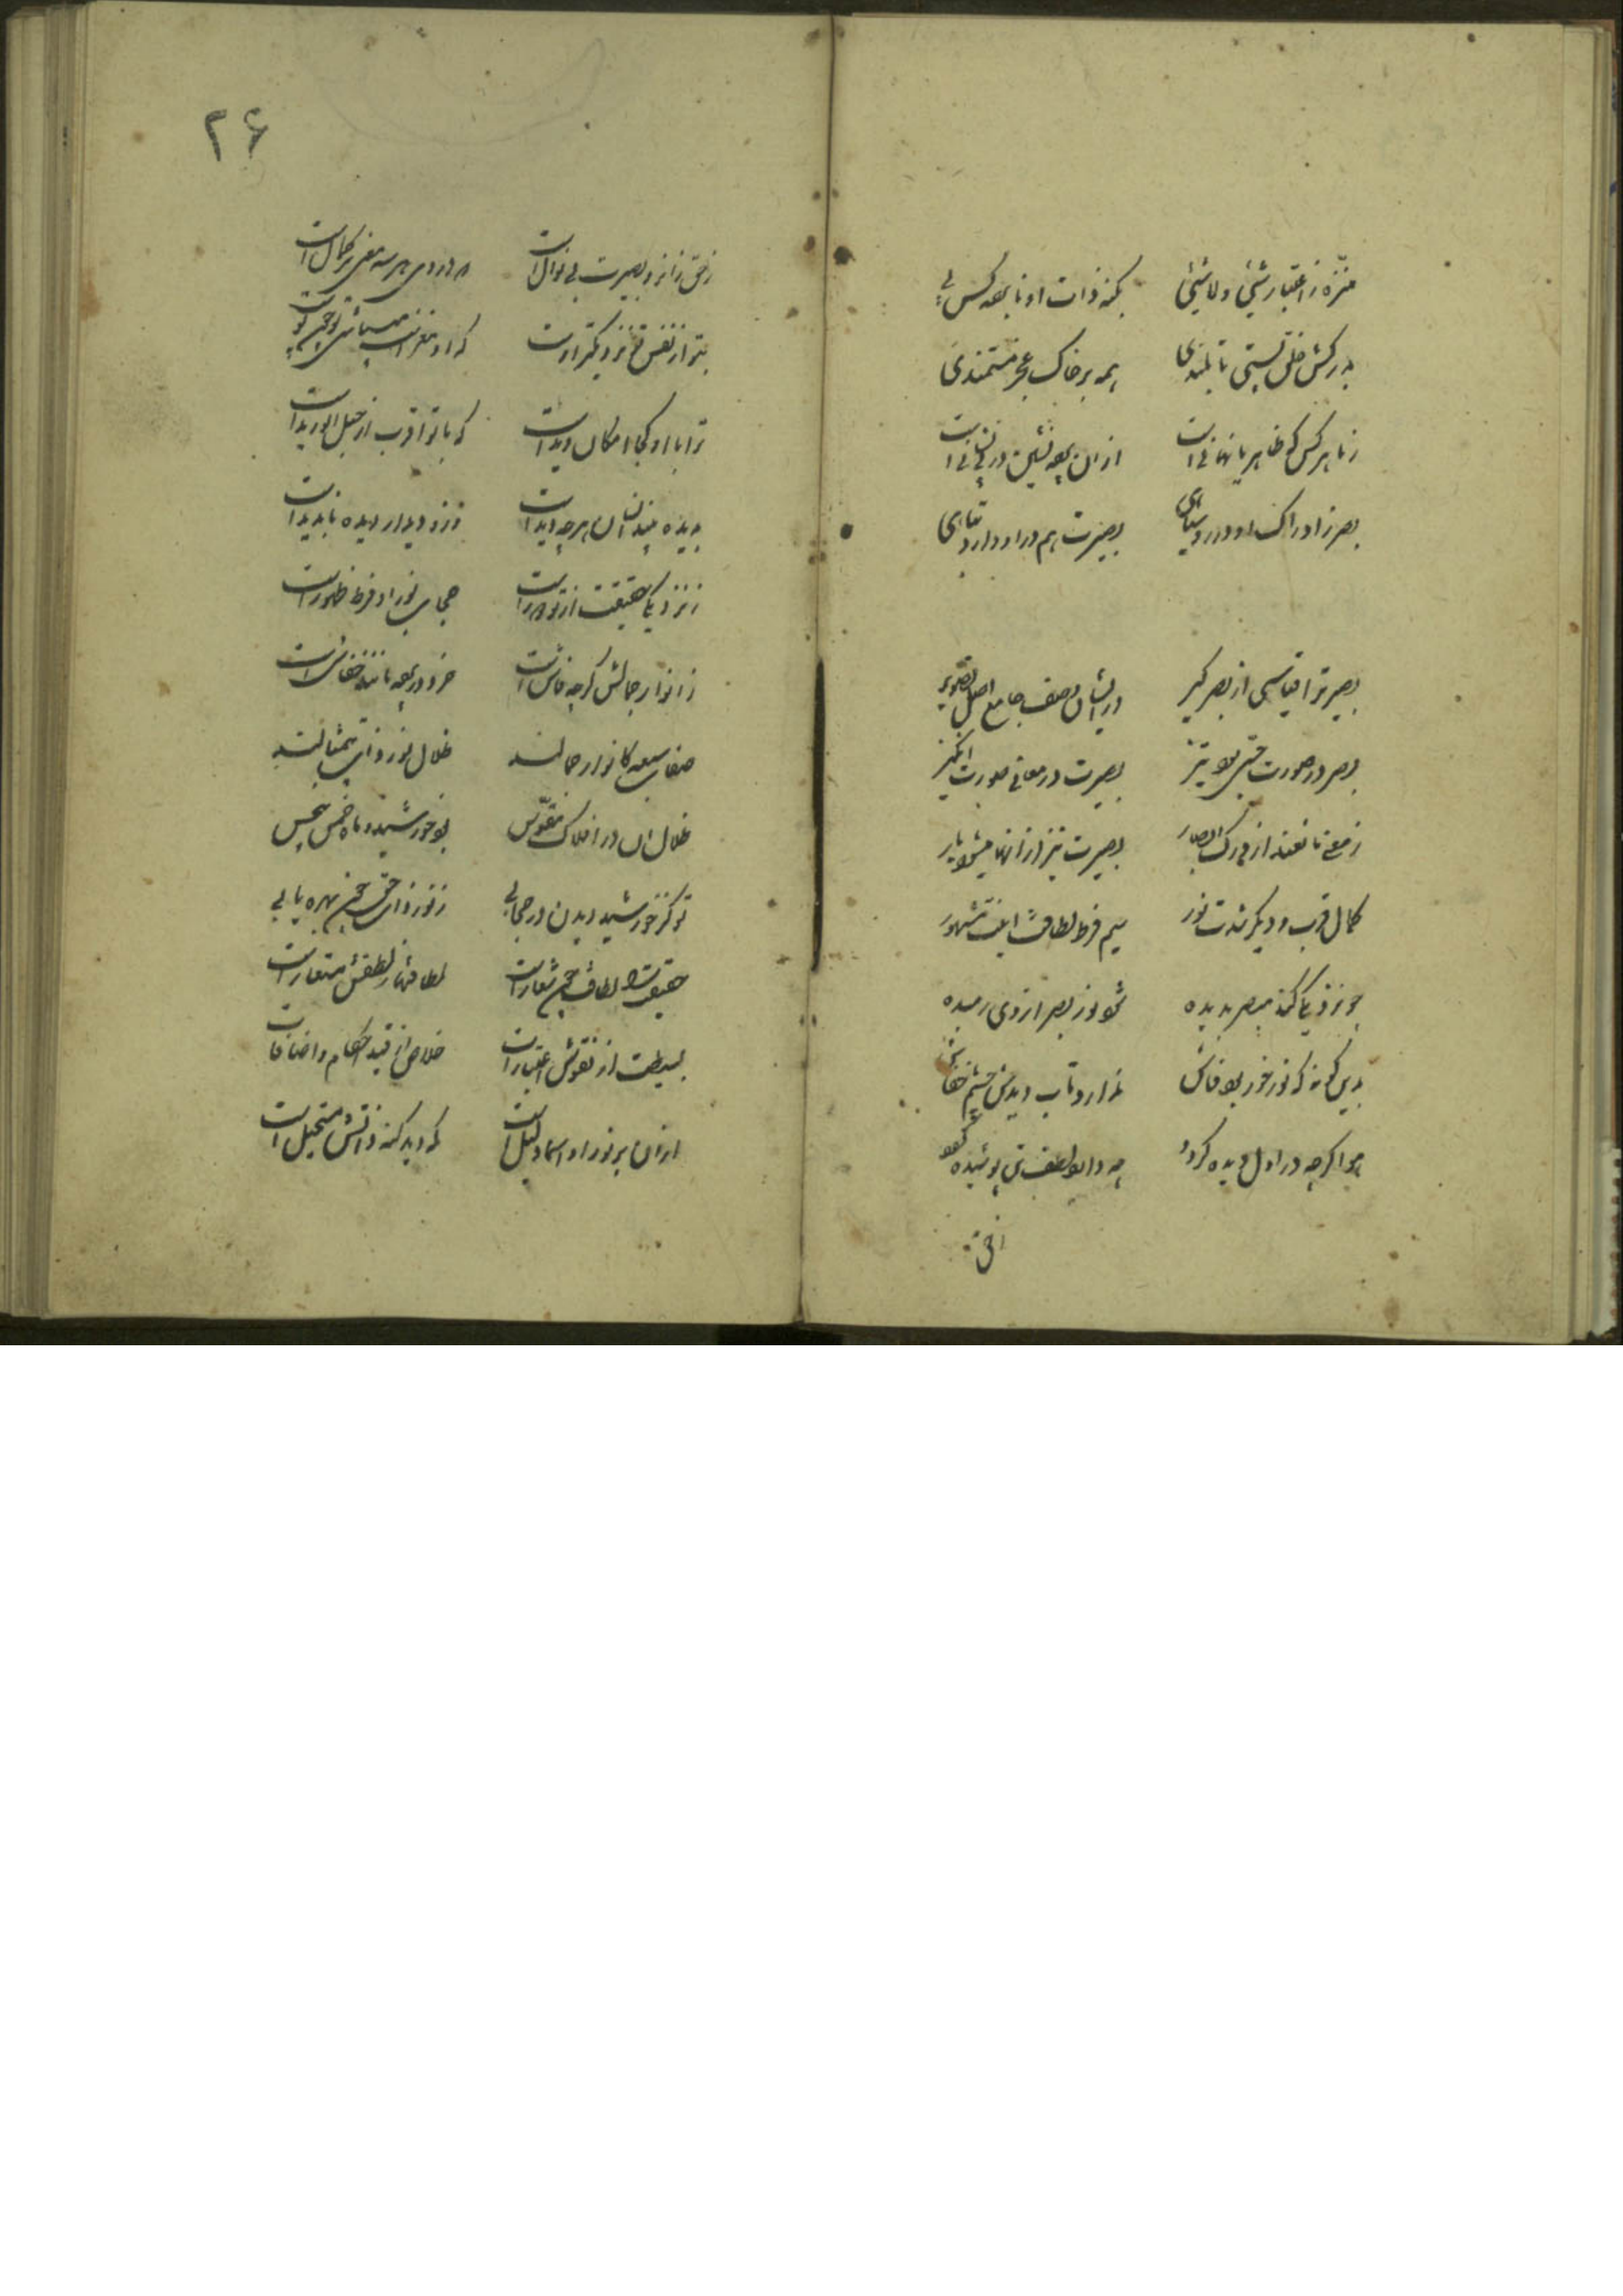 منزه ز اعتبار شیئی و لا شیئی بکنه ذات او نابرده کس پی
بدرکش خلق پستی تا بلندی همه بر خاک عجز مستمندی
ز ما هر کس که ظاهر یا نهانی است از آن پرده نشین در بی نشانی است
بصر ز ادراک او دارد بصیرت هم در او دارد
بصیر ترا قیاسی از بصر گیر در ایشان وصف جامع اصل تصویر
بصر در صورت حسی بود تیز بصیرت در معانی صورت انگیز
ز معنی مانعند از درک ابصار بصیرت نیز از آنها میشود
کمال قرب و دیگر شدت نور سیم فرط لطافت
چو نزدیکی کند مبصر بدیده شود نور بصر از وی رمیده
بدین گونه که نور خور بود فاش ندارد تاب دیدش چشم خفاش
هوا گرچه در اول دیده گردد چه دارد لطف پوشیده گردد
۲۶
ز حق زانرو بصیرت بی نوال است که در وی هر سه معنی بر کمال است
بتو از نفس تو نزدیکتر اوست که او مغز است
ترا با او کجا امکان دید است که با تو اقرب از حبل الورید است
بدیده بیند انسان هر چه دید است وزو دیدار دیده ناپدید است
ز نزدیکی حقیقت از تو دور است حجاب نور او فرط ظهور است
ز انوار جمالش گرچه فاش است خرد در پرده مانند خفاش است
صفات سبعه کانوار جمالند ظلال نور ذات بیمثالند
ظلال آن در افلاک مقوس بود خورشید و ماه و خمس
تو کز خورشید دیدن در حجابی ز نور ذات حق چون بهره یابی
حقیقت را لطافت چون شعار است لطافتها ز لطفش مستعار است
بسیط است از نقوش اعتبارات خلاص از قید احکام و اضافات
از آن برتر او اسما دلیل است که دید کنه ذاتش مستحیل است